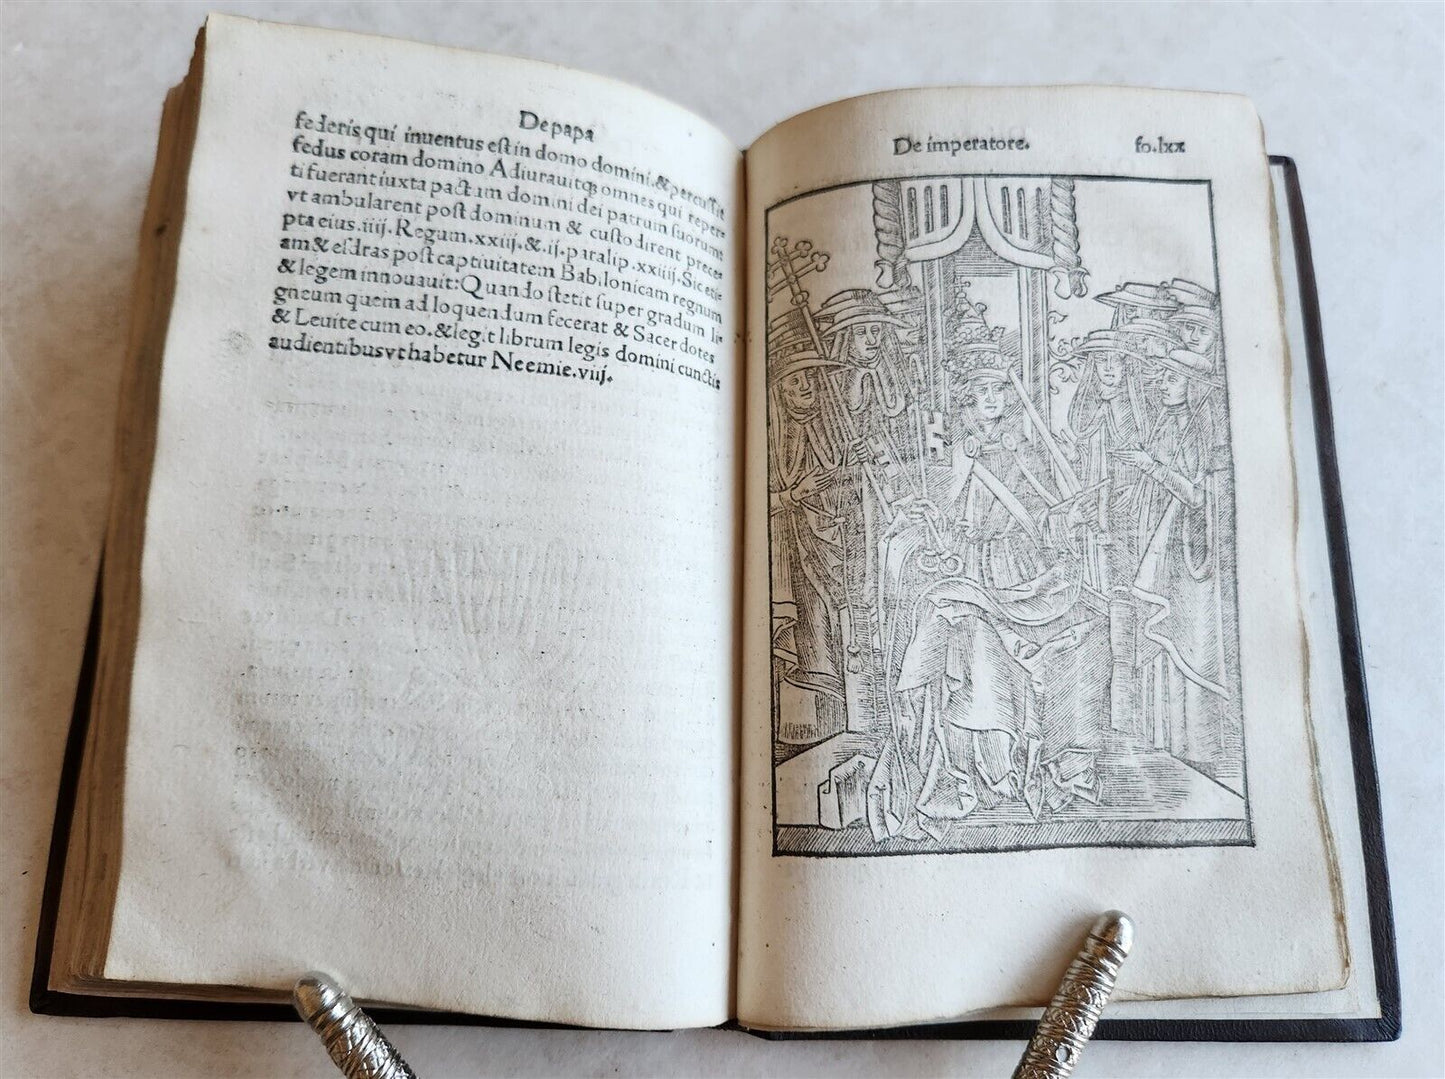 De papa
federis qui inuentus est in domo domini.& percussit
fedus coram domino Adiurauitqȝ omnes qui reper
ti fuerant iuxta pactum domini dei patrum suorum
vt ambularent post dominum & custodirent prece
pta eius .iiij. Regum.xxiij.&.ij.paralip.xxiiij.Sic eti
am & esdras post captiuitatem Babilonicam regnum
& legem innouauit:Quando stetit super gradum li
gneum quem ad loquendum fecerat & Sacerdotes
& Leuite cum eo.& legit librum legis domini cunctis
audientibus vt habetur Neemie.viij.
De imperatore.
fo.lxx